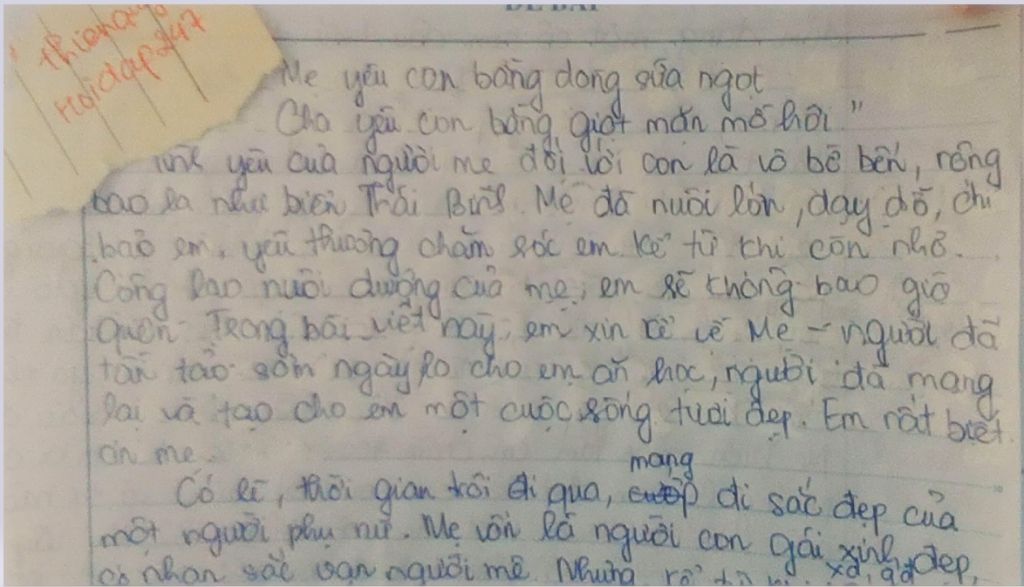 ĐỀ BÀI
Hoidap247
Mẹ yêu con bằng dòng sữa ngọt
Cha yêu con, bằng giọt mặn mồ hôi"
Tình yêu của người mẹ đối với con là vô bờ bến, rộng
bao la như biển Thái Bình. Mẹ đã nuôi lớn, dạy dỗ, chỉ
bảo em, yêu thương chăm sóc em kể từ khi còn nhỏ.
Công lao nuôi dưỡng của mẹ, em sẽ không bao giờ
quên. Trong bài viết này, em xin kể về Mẹ - người đã
tần tảo sớm ngày lo cho em ăn học, người đã mang
lại và tạo cho em một cuộc sống tươi đẹp. Em rất biết
ơn mẹ.
Có lẽ, thời gian trôi đi qua, mang đi sắc đẹp của
một người phụ nữ. Mẹ vốn là người con gái xinh đẹp,
có nhan sắc vạn người mê. Nhưng